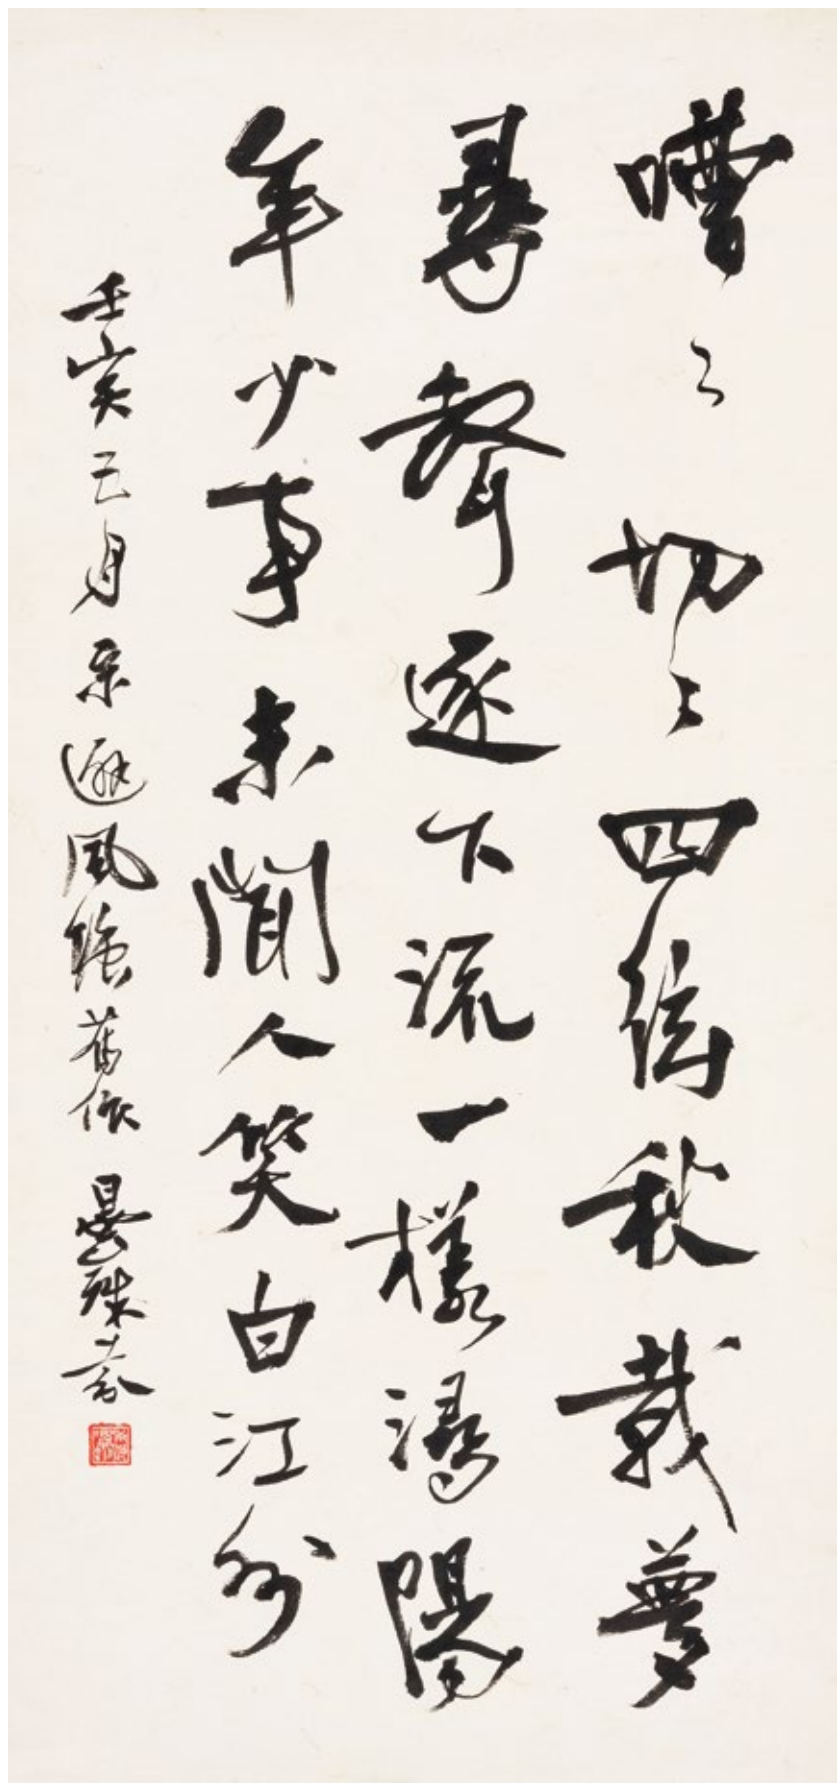 嘈々切々四絃秋載夢
尋聲逐下流一樣潯陽
年少事未聞人笑白江州
壬寅五月录避風塘舊作曇殊